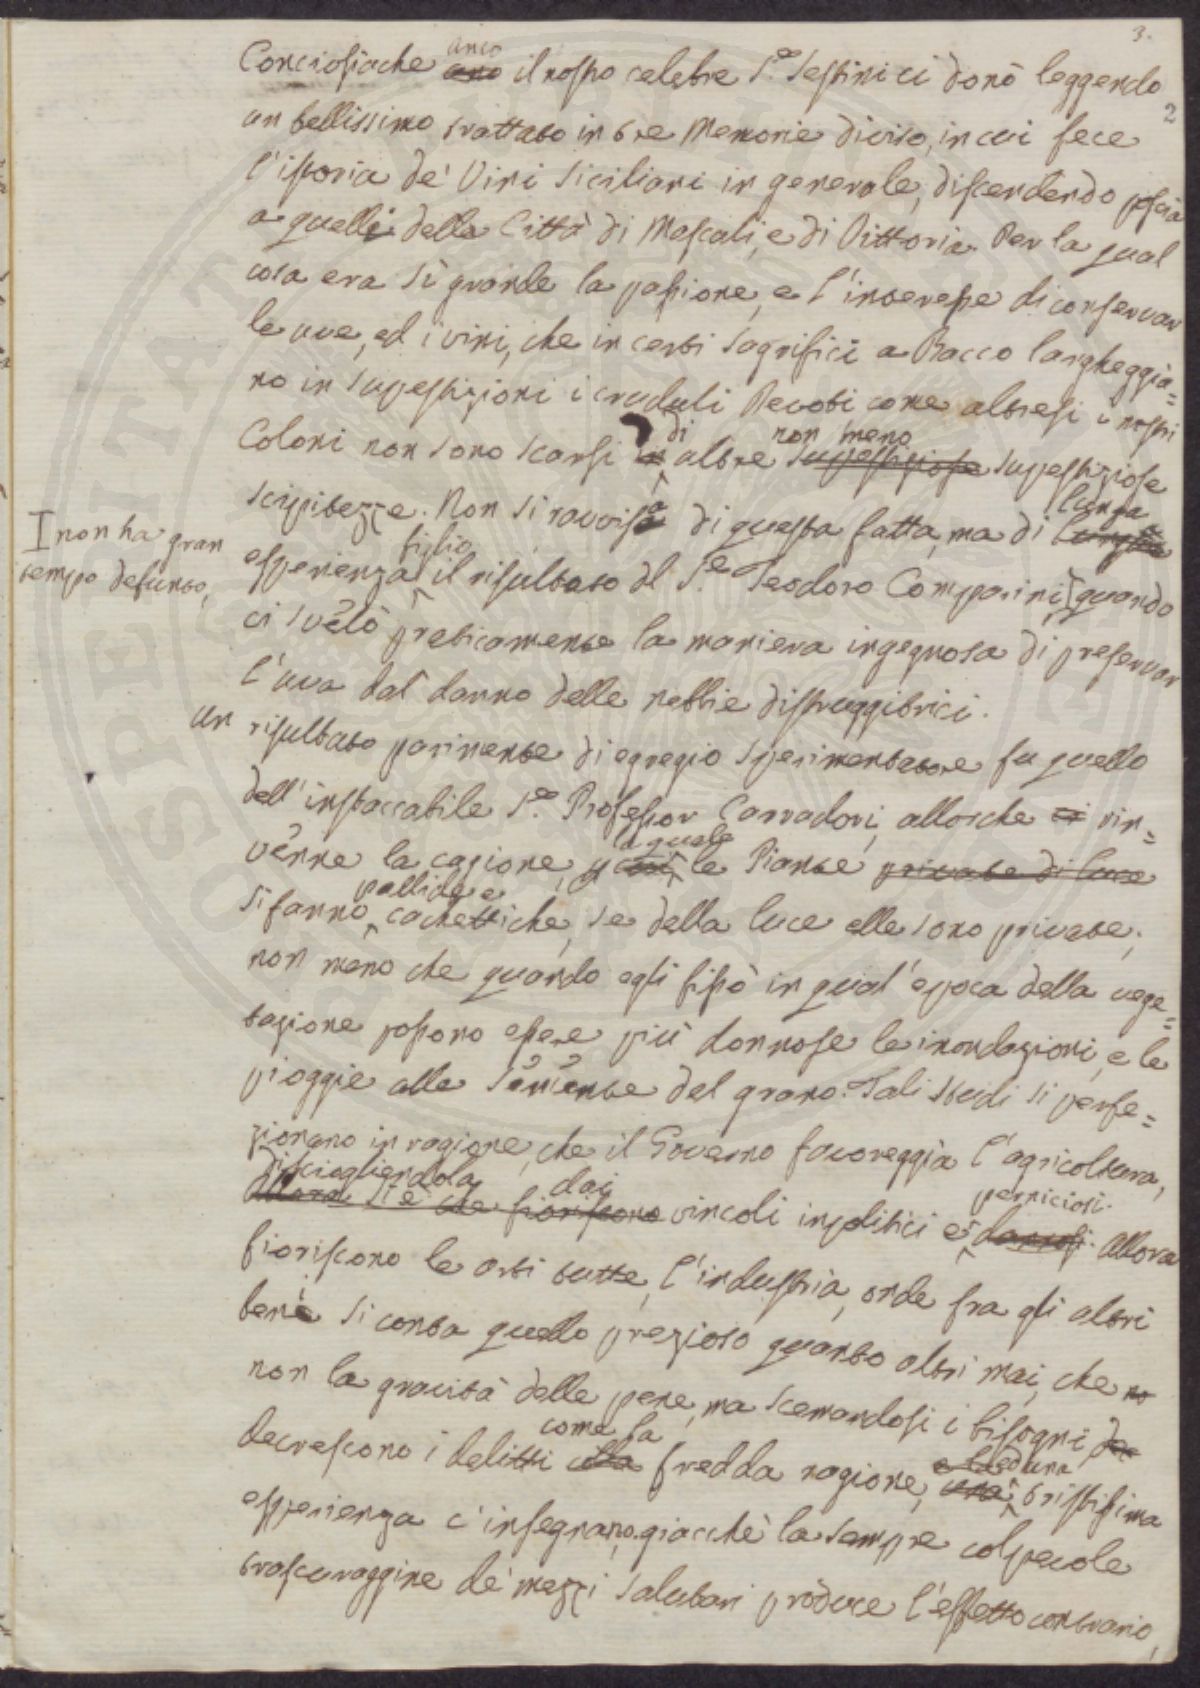 3.
2
anco
Conciosiache ano il nostro celebre S.e Sestini ci donò leggendo
un bellissimo trattato in tre Memorie diviso, in cui fece
l'istoria de' Vini Siciliani in generale, discendendo poscia
a quelli della Città di Mascali, e di Vittoria. Per la qual
cosa era sì grande la passione, e l'interesse di conservar
le uve, ed i vini, che in certi sagrifici a Bacco largheggia=
no in superstizioni i creduli Devoti come altresì i nostri
di non meno
Coloni non sono scarsi in altre superstiziose superstiziose
lunga
scipitezze. Non si ravvisa di questa fatta, ma di
figlio
esperienza il risultato del S.e Teodoro Comparini I quando
I non ha gran
tempo defunto,
ci svelò praticamente la maniera ingegnosa di preservar
l'uva dal danno delle nebbie distruggitrici.
un risultato parimente di egregio sperimentatore fu quello
dell'instaccabile S.e Professor Carradori, allorche ei rin=
la quale
venne la cagione, per le Piante private di luce
pallide e
si fanno cachettiche, se della luce elle sono private;
non meno che quando egli fissò in qual'epoca della vege=
tazione possono essere più dannose le inondazioni, e le
pioggie alle semente del grano. Tali studi si perfe=
zionano in ragione, che il Governo favoreggia l'agricoltura,
disciogliendola dai perniciosi.
allora si è che fioriscono vincoli inpolitici e dannosi. Allora
fioriscono le arti tutte, l'industria, onde fra gli altri
beni si conta quello prezioso quanto altri mai, che no
non la gravità delle pene, ma scemandosi i bisogni
come la
decrescono i delitti fredda ragione, e la dura tristissima
esperienza c'insegnano, giacchè la sempre colpevole
trascuraggine de' mezzi salutari produce l'effetto contrario,